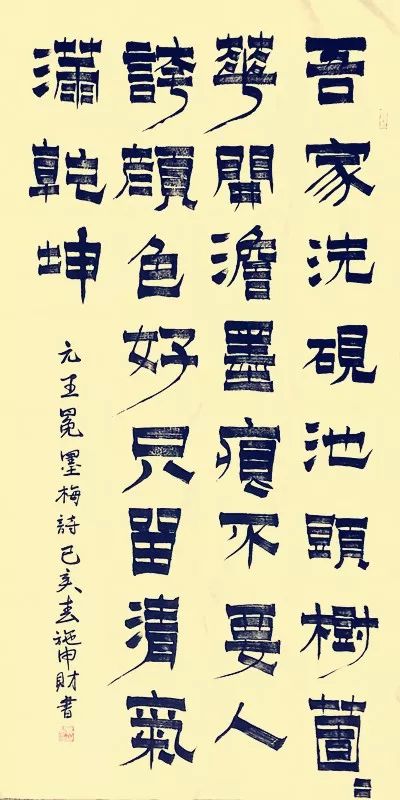 吾家洗硯池頭樹箇々
華開澹墨痕不要人
誇顏色好只留清氣
滿乾坤
元王冕墨梅詩己亥春施申財書